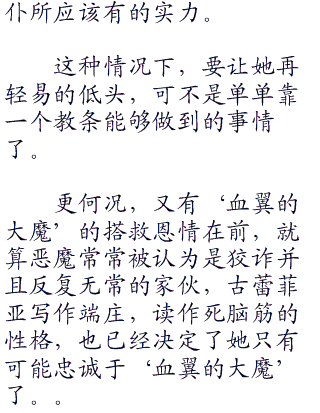 仆所应该有的实力。
这种情况下，要让她再
轻易的低头，可不是单单靠
一个教条能够做到的事情
了。
更何况，又有‘血翼的
大魔’的搭救恩情在前，就
算恶魔常常被认为是狡诈并
且反复无常的家伙，古蕾菲
亚写作端庄，读作死脑筋的
性格，也已经决定了她只有
可能忠诚于‘血翼的大魔’
了。。